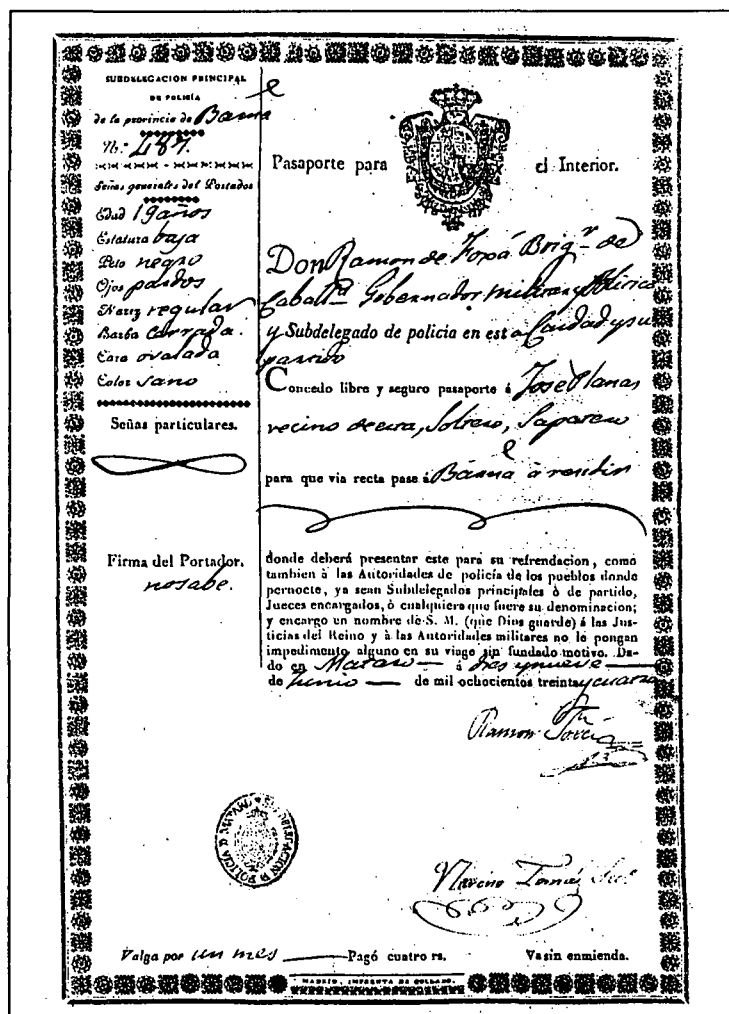 SUBDELEGACION PRINCIPAL
DE POLICÍA
de la provincia de Barna
N.º 487.
Señas generales del Portador
Edad 19 años
Estatura baja
Pelo negro
Ojos pardos
Nariz regular
Barba Cerrada.
Cara ovalada
Color Sano
Señas particulares.
Firma del Portador.
no sabe.
Pasaporte para el Interior.
Don Ramon de Foxá Brigr. de
Caballa. Gobernador militar y Politico
y Subdelegado de policía en esta Ciudad y su
partido
Concedo libre y seguro pasaporte á José Planas
vecino de esta, Soltero, Zapatero
para que via recta pase á Barna à residir
donde deberá presentar este para su refrendacion, como
tambien à las Autoridades de policía de los pueblos donde
pernocte, ya sean Subdelegados principales ò de partido,
Jueces encargados, ò cualquiera que fuere su denominacion;
y encargo en nombre de S. M. (que Dios guarde) á las Jus-
ticias del Reino y à las Autoridades militares no le pongan
impedimento alguno en su viage sin fundado motivo. Da-
do en Mataro á diez y nueve
de Junio de mil ochocientos treinta y cuatro
Ramon
SUBDELEGACION D POLICIA D MATARO
Narciso Tomás
Valga por un mes Pagó cuatro rs. Va sin enmienda.
MADRID, IMPRENTA DE COLLADO.